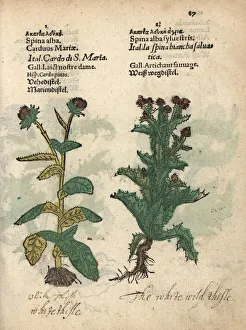 69
1.
Ακανθα λευκὴ.
Spina alba.
Carduus Mariæ.
Ital. Cardo di S. Maria.
Gall. Laict nostre dame.
Hisp. Cardo pinto.
Vehedistel.
Mariendistel.
2.
Ακανθα λευκὴ ἀγρία.
Spina alba sylvestris.
Ital. la spina biancha salua
tica.
Gall. Artichaut sauuage.
Weiß wegdistel.
white thisle.
The white wild thisle.